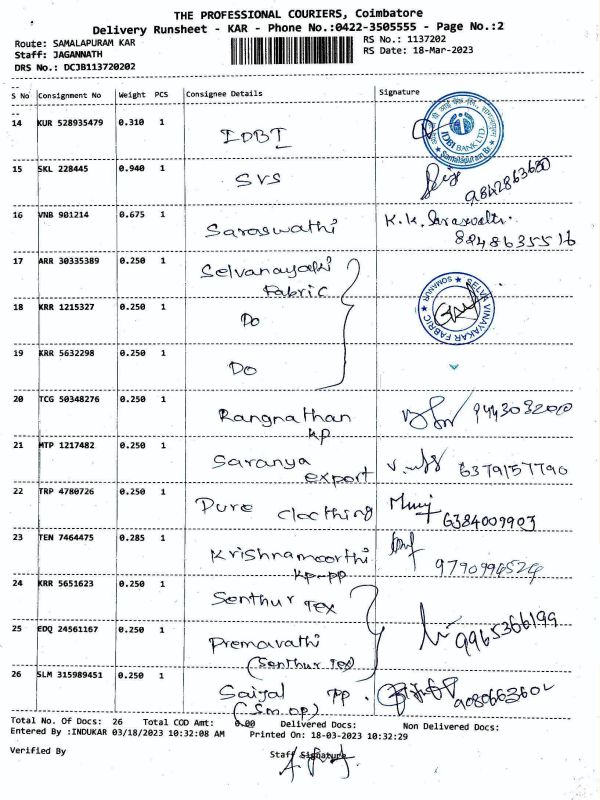 THE PROFESSIONAL COURIERS, Coimbatore
Delivery Runsheet - KAR - Phone No.:0422-3505555 - Page No.:2
Route: SAMALAPURAM KAR RS No.: 1137202
Staff: JAGANNATH RS Date: 18-Mar-2023
DRS No.: DCJB113720202
S No Consignment No Weight PCS Consignee Details Signature
14 KUR 528935479 0.310 1 IDBI
IDBI BANK LTD.
Samalapuram Br
15 SKL 228445 0.940 1 SVS
9842863680
16 VNB 901214 0.675 1 Saraswathi K.K. Saraswathi.
8248635516
17 ARR 30335389 0.250 1 Selvanayaki
Fabric
18 KRR 1215327 0.250 1 Do
SELVA VINAYAKAR FABRIC ★ SOMANUR ★
19 KRR 5632298 0.250 1 Do
20 TCG 50348276 0.250 1 Rangnathan
KP
9443032000
21 MTP 1217482 0.250 1 Saranya
export
6379157790
22 TRP 4780726 0.250 1 Pure clocthing
6384009903
23 TEN 7464475 0.285 1 Krishnamoorthi
KP-PP
9790994524
24 KRR 5651623 0.250 1 Senthur Tex
25 EDQ 24561167 0.250 1 Premavathi
(Senthur Tex)
9965366199
26 SLM 315989451 0.250 1 PP.
(S.m.op)
9080663602
Total No. Of Docs: 26 Total COD Amt: 0.00 Delivered Docs: Non Delivered Docs:
Entered By :INDUKAR 03/18/2023 10:32:08 AM Printed On: 18-03-2023 10:32:29
Verified By Staff Signature